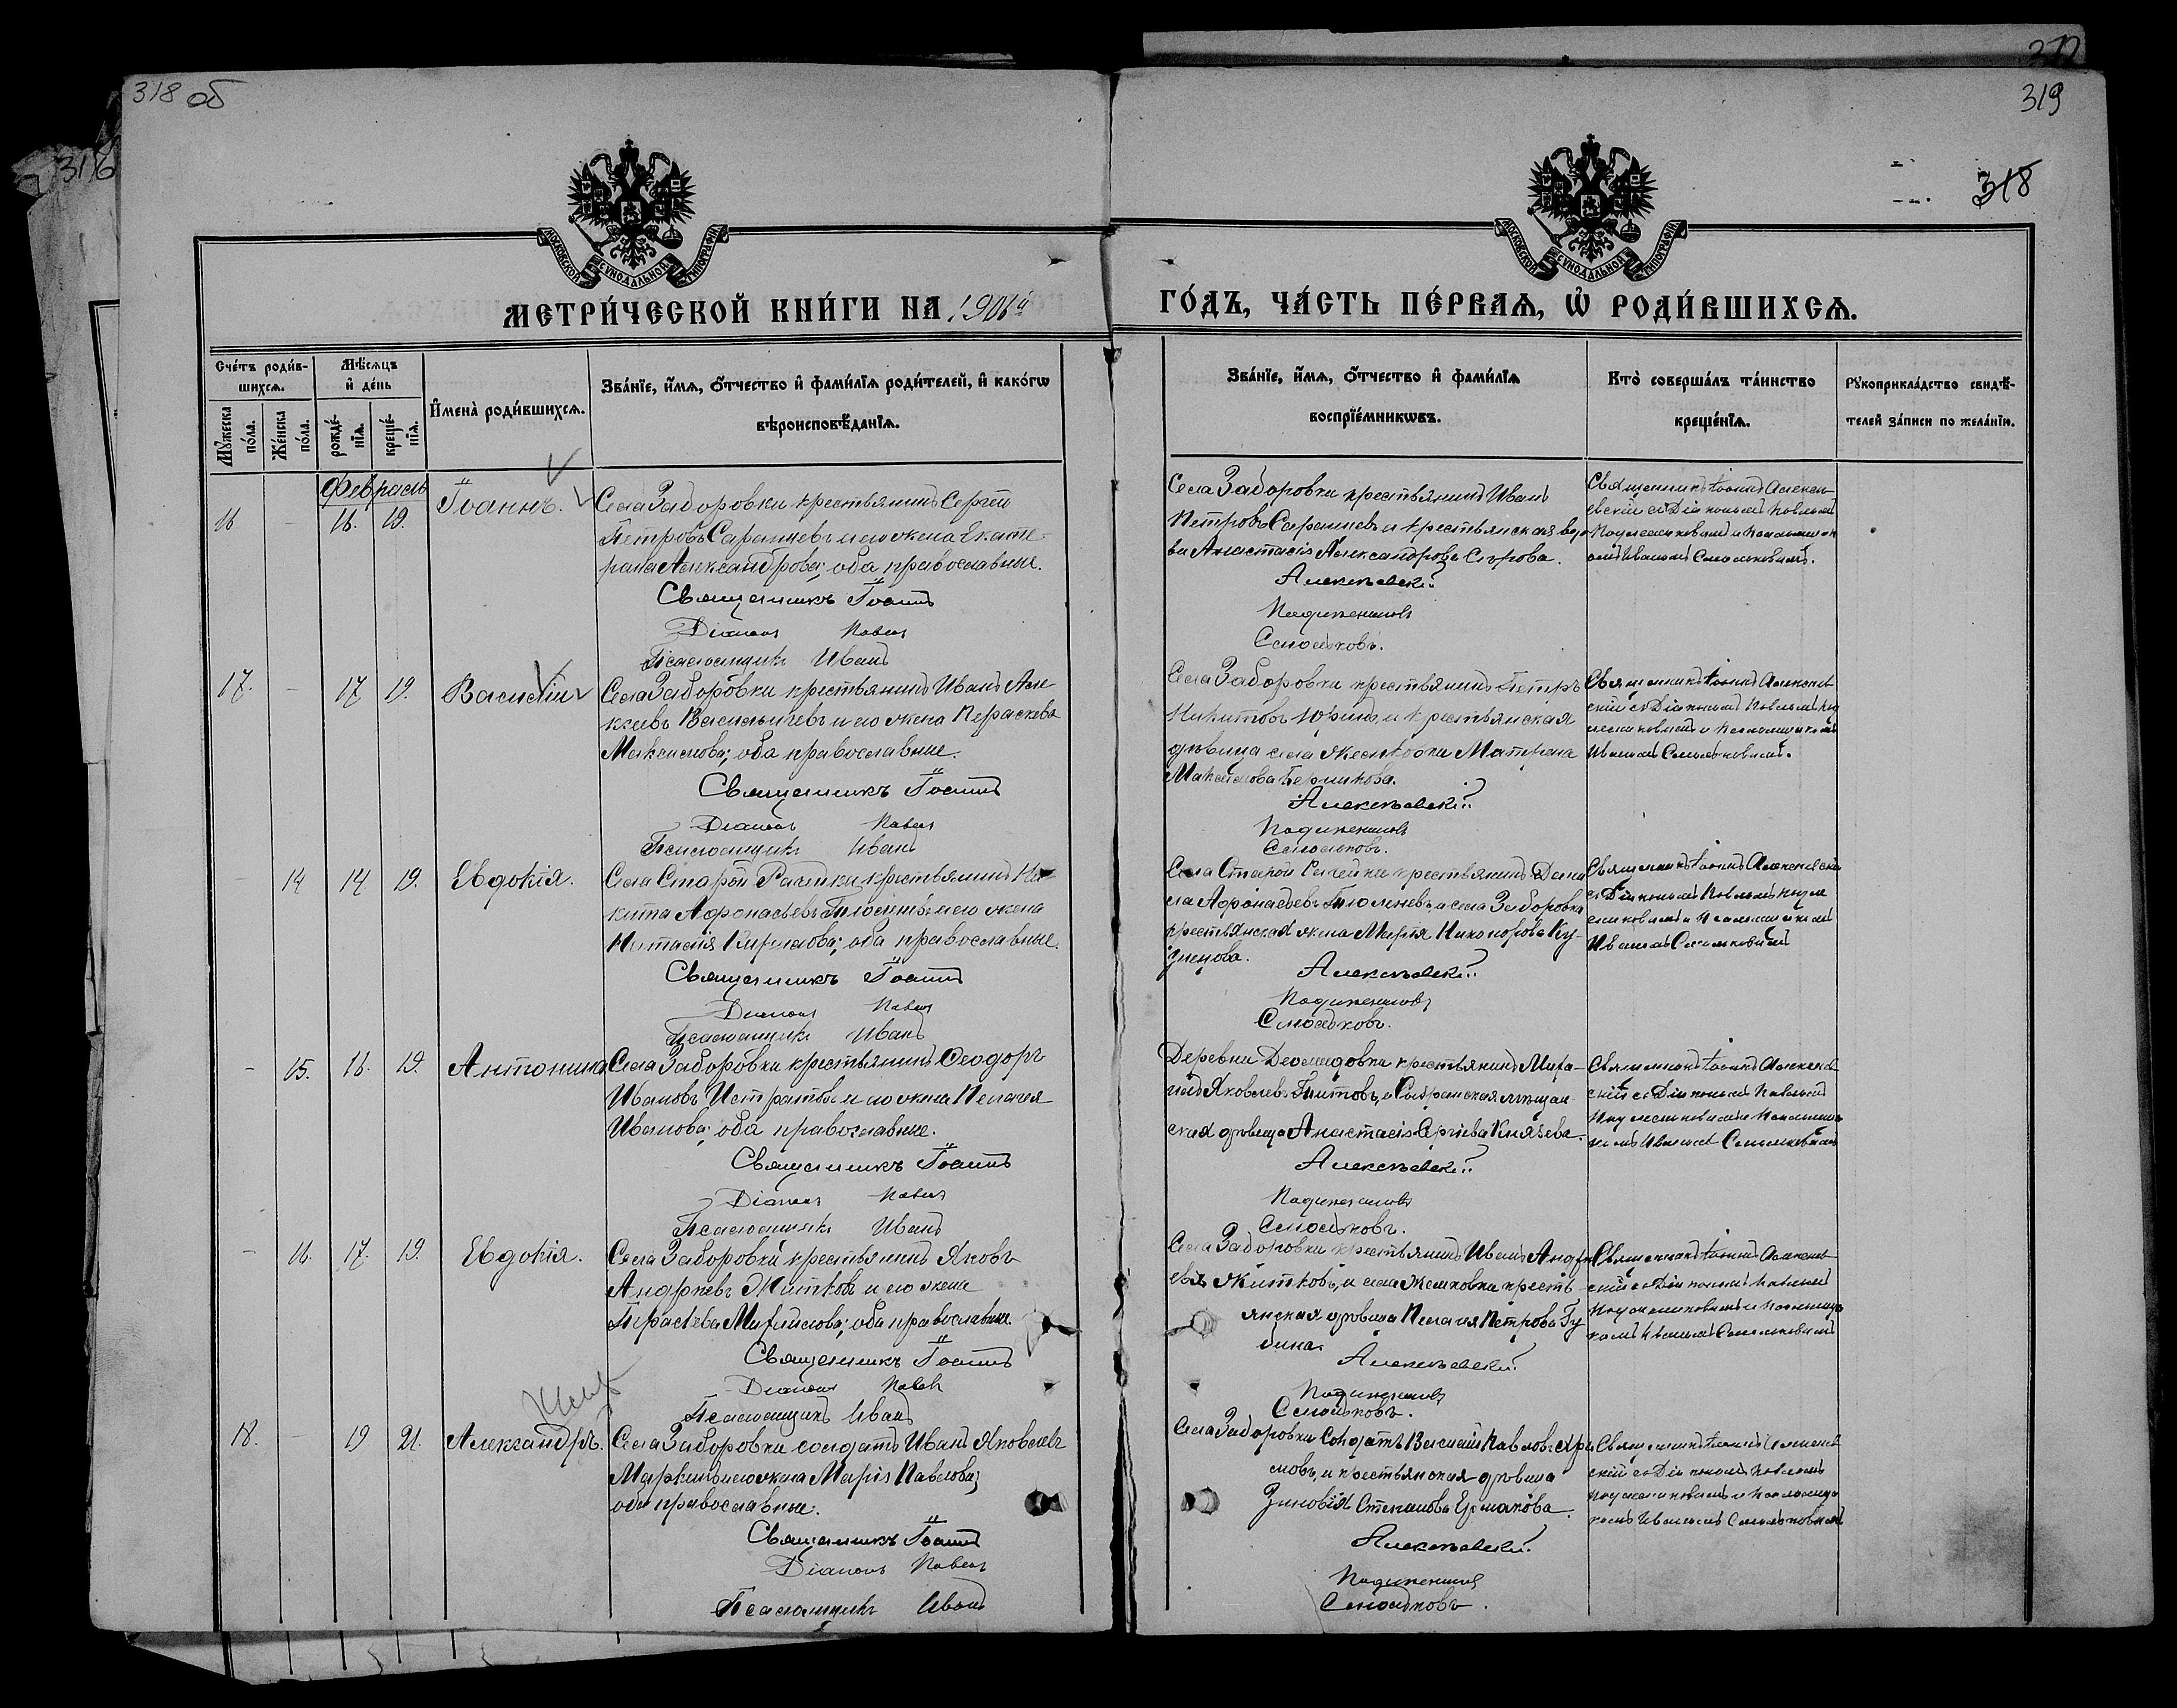 318 об
319
318
316
МОСКОВСКОЙ СУНОДАЛЬНОЙ ТИПОГРАФІИ
МОСКОВСКОЙ СУНОДАЛЬНОЙ ТИПОГРАФІИ
МЕТРИ́ЧЕСКОЙ КНИ́ГИ НА 190
ГО́ДЪ, ЧА́СТЬ ПЕ́РВАѦ, Ѽ РОДИ́ВШИХСѦ.
Сче́тъ роди́в-
шихсѧ.
Мꙋжеска по́ла.
Же́нска по́ла.
Мѣ́сѧцъ
и҆ де́нь
рожде́-
нїѧ.
креще́-
нїѧ.
И҆мена̀ роди́вшихсѧ.
Зва́нїе, и҆́мѧ, ѻ҆́тчество и҆ фами́лїѧ роди́телей, и҆ како́гѡ
вѣроисповѣ́данїѧ.
Зва́нїе, и҆́мѧ, ѻ҆́тчество и҆ фами́лїѧ
воспрїе́мникѡвъ.
Кто̀ соверша́лъ та́инство
креще́нїѧ.
Рꙋкоприкла́дство свидѣ́-
телей за́писи по жела́нїю.
Февраль
16 - 16. 19. Іоаннъ.
Села Заборовки крестьянинъ Сергей
Петровъ Саранцевъ и его жена Екате-
рина Александрова; оба православные.
Священникъ Іоаннъ
Діаконъ Павелъ
Псаломщикъ Иванъ
Села Заборовки крестьянинъ Иванъ
Петровъ Саранцевъ и крестьянская вдо-
ва Анастасія Александрова Сѣрова.
Алексѣевскій
Смольковъ.
Священникъ Іоаннъ Алексѣ-
евскій съ Діакономъ Павломъ
и Псаломщик-
омъ Иваномъ Смольковымъ.
17. - 17 19. Василій
Села Заборовки крестьянинъ Иванъ Але-
ксѣевъ Васильичевъ и его жена Пераскева
Максимова; оба православные.
Священникъ Іоаннъ
Діаконъ Павелъ
Псаломщикъ Иванъ
Села Заборовки крестьянинъ Петръ
Никитовъ Юринъ, и крестьянская
дѣвица села Матрона
Максимова
Алексѣевскій
Смольковъ.
Священникъ Іоаннъ Алексѣев-
скій съ Діакономъ Павломъ
и Псаломщикомъ
Иваномъ Смольковымъ.
- 14 14 19. Евдокія.
Села Старой Рачейки крестьянинъ Ни-
кита Афонасьевъ и его жена
Кирилова; оба православные.
Священникъ Іоаннъ
Діаконъ Павелъ
Псаломщикъ Иванъ
Села Старой Рачейки крестьянинъ Дани-
ла Афонасьевъ и села Заборовки
крестьянская жена Марія Никонорова Ку-
знецова.
Алексѣевскій
Смольковъ.
Священникъ Іоаннъ Алексѣевскій
съ Діакономъ Павломъ
и Псаломщикомъ
Иваномъ Смольковымъ
- 15. 16. 19. Антонина
Села Заборовки крестьянинъ Ѳеодоръ
Ивановъ и его жена Пелагея
Иванова; оба православные.
Священникъ Іоаннъ
Діаконъ Павелъ
Псаломщикъ Иванъ
Деревни Деомидовки крестьянинъ Миха-
илъ Яковлевъ Титовъ, и Сызранская мѣщан-
ская дѣвица Анастасія Князева.
Алексѣевскій
Смольковъ.
Священникъ Іоаннъ Алексѣев-
скій съ Діакономъ Павломъ
и Псаломщи-
комъ Иваномъ Смольковымъ
- 16. 17. 19. Евдокія.
Села Заборовки крестьянинъ Яковъ
Андреевъ Житковъ и его жена
Параскева Михайлова; оба православные.
Священникъ Іоаннъ
Діаконъ Павелъ
Псаломщикъ Иванъ
Села Заборовки крестьянинъ Иванъ Андре-
евъ Житковъ, и села крестъ-
янская дѣвица Пелагея Петрова Гу-
бина.
Алексѣевскій
Смольковъ.
Священникъ Іоаннъ Алексѣев-
скій съ Діакономъ Павломъ
и Псаломщи-
комъ Иваномъ Смольковымъ
18. - 19 21. Александръ.
Села Заборовки солдатъ Иванъ Яковлевъ
Маркинъ и его жена Марія Павлова;
оба православные.
Священникъ Іоаннъ
Діаконъ Павелъ
Псаломщикъ Иванъ
Села Заборовки солдатъ Василій Павловъ
и крестьянская дѣвица
Зиновія Степанова Ермакова.
Алексѣевскій
Смольковъ.
Священникъ Іоаннъ Алексѣев-
скій съ Діакономъ Павломъ
и Псаломщи-
комъ Иваномъ Смольковымъ